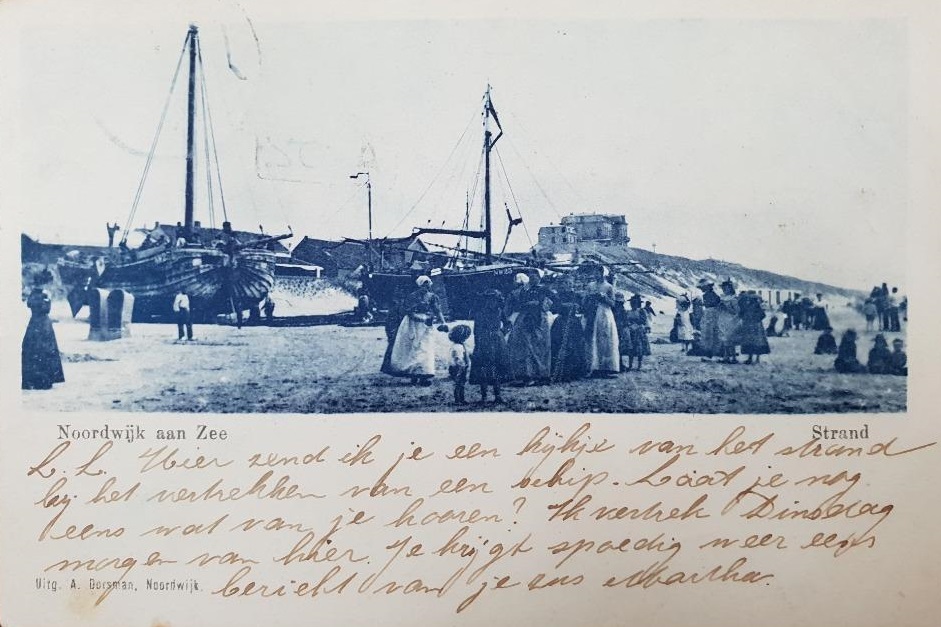 Noordwijk aan Zee
Strand
L. L. Hier zend ik je een kijkje van het strand
bij het vertrekken van een schip. Laat je nog
eens wat van je hooren? Ik vertrek Dinsdag
morgen van hier. Je krijgt spoedig weer eens
Uitg. A. Dorsman, Noordwijk.
bericht van je zus Martha.